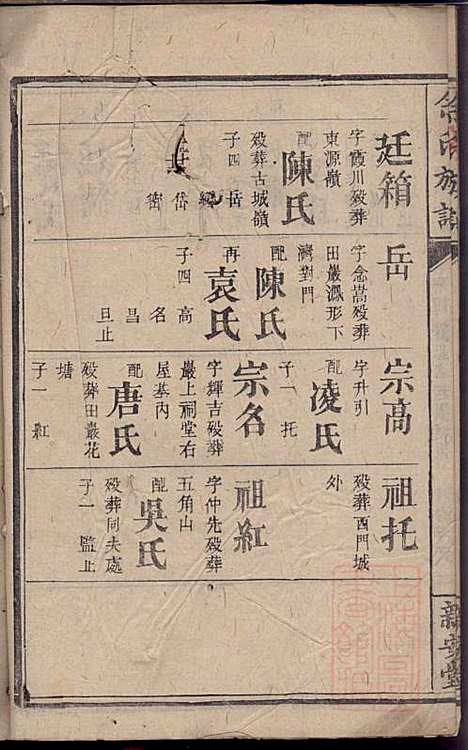 廷箱
字霞川殁葬
東源嶺
配陳氏
殁葬古城嶺
子四 岳
岱
密
岳
字念嵩殁葬
田巖瀑形下
灣對門
配陳氏
再袁氏
子四 高
名
昌
旦止
宗高
字升引
配凌氏
子一 托
宗名
字輝吉殁葬
巖上祠堂右
屋基內
配唐氏
殁葬田巖花
塘
子一 紅
祖托
殁葬西門城
外
祖紅
字仲先殁葬
五角山
配吳氏
殁葬同夫處
子一 監止
氏族譜
新安堂